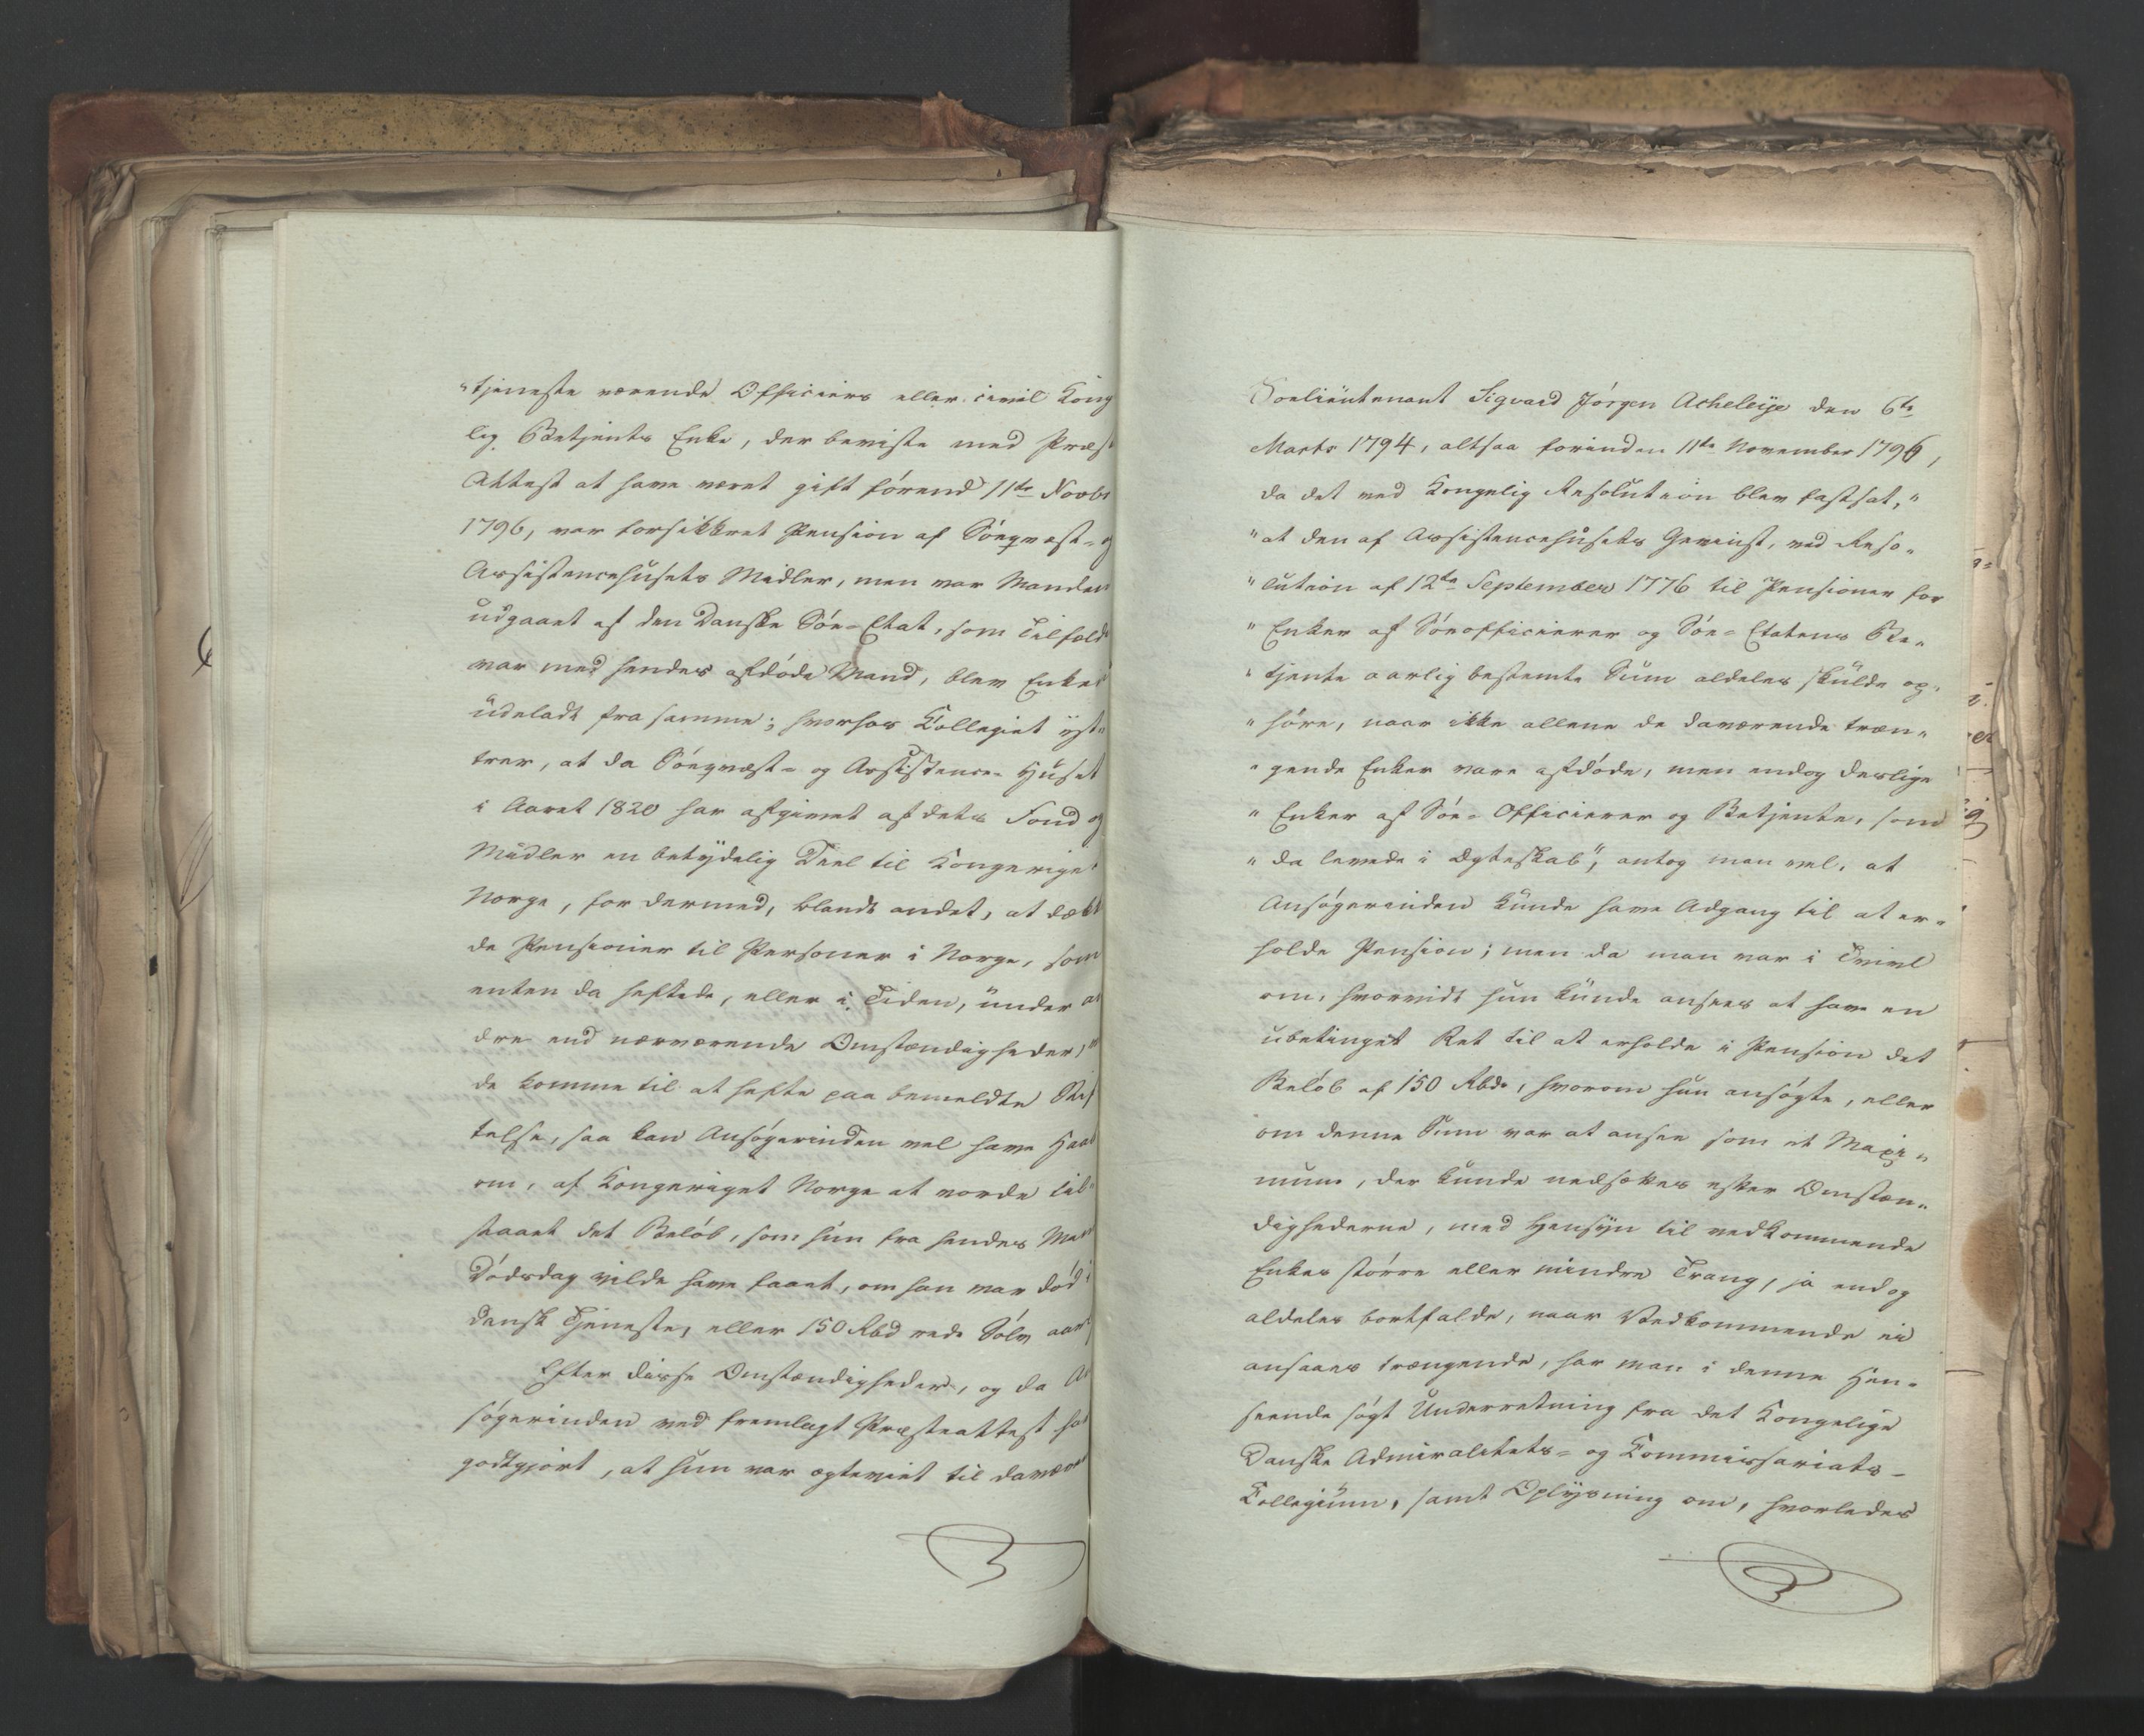 "tjeneste værende Officiers eller civil Kong
lig Betjents Enke, der beviste med Præst
Attest at have været gift förend 11te Novbr
1796, var forsikkret Pension af Söeqvæst- og
Assistencehusets Midler, men var Manden
udgaaet af den Danske Söe-Etat, som Tilfældet
var med hendes afdöde Mand, blev Enken
udeladt fra samme; hvorhos Collegiet ytt-
trer, at da Söeqvæst- og Assistence-Huset
i Aaret 1820 har afgivet af dets Fond og
Midler en betydelig Deel til Kongeriget
Norge, for dermed, blandt andet, at dække
de Pensioner til Personer i Norge, som
enten da heftede, eller i Tiden, under an
dre end nærværende Omstændigheder,
de komme til at hefte paa bemeldte Stif
telse, saa kan Ansögerinden vel have Haab
om, af Kongeriget Norge at vorde til-
staaet det Belöb, som hun fra hendes Mands
Dödsdag vilde have faaet, om han var död i
Dansk Tjeneste, eller 150 Rbd rede Sölv aarl
Efter disse Omstændigheder, og da An
sögerinden ved fremlagt Præsteattest har
godtgjort, at hun var ægteviet til daværende
Soelieutenant Sigvard Jörgen Acheleye den 6te
Marts 1794, altsaa forinden 11te November 1796,
da det ved Kongelig Resolution blev fastsat, "
"at den af Assistencehusets Gevinst, ved Reso-
"lution af 12te September 1776 til Pensioner for
"Enker af Söeofficierer og Söe-Etatens Be-
"tjente aarlig bestemte Sum aldeles skulde op-
"höre, naar ikke allene de daværende træn-
"gende Enker vare afdöde, men endog deslige
"Enker af Söe-Officierer og Betjente, som
"da levede i Ægteskab", antog man vel, at
Ansögerinden kunde have Adgang til at er-
holde Pension; men da man var i Tvivl
om, hvorvidt hun kunde ansees at have en
ubetinget Ret til at erholde i Pension det
Belöb af 150 Rbd, hvorom hun ansögte, eller
om denne Sum var at ansee som et Maxi-
mum, der kunde nedsættes efter Omstæn-
dighederne, med Hensyn til vedkommende
Enkes större eller mindre Trang, ja endog
aldeles bortfalde, naar Vedkommende ei
ansaaes trængende, har man i denne Hen-
seende sögt Underretning fra det Kongelige
Danske Admiralitets- og Commissariats-
Collegium, samt Oplysning om, hvorledes